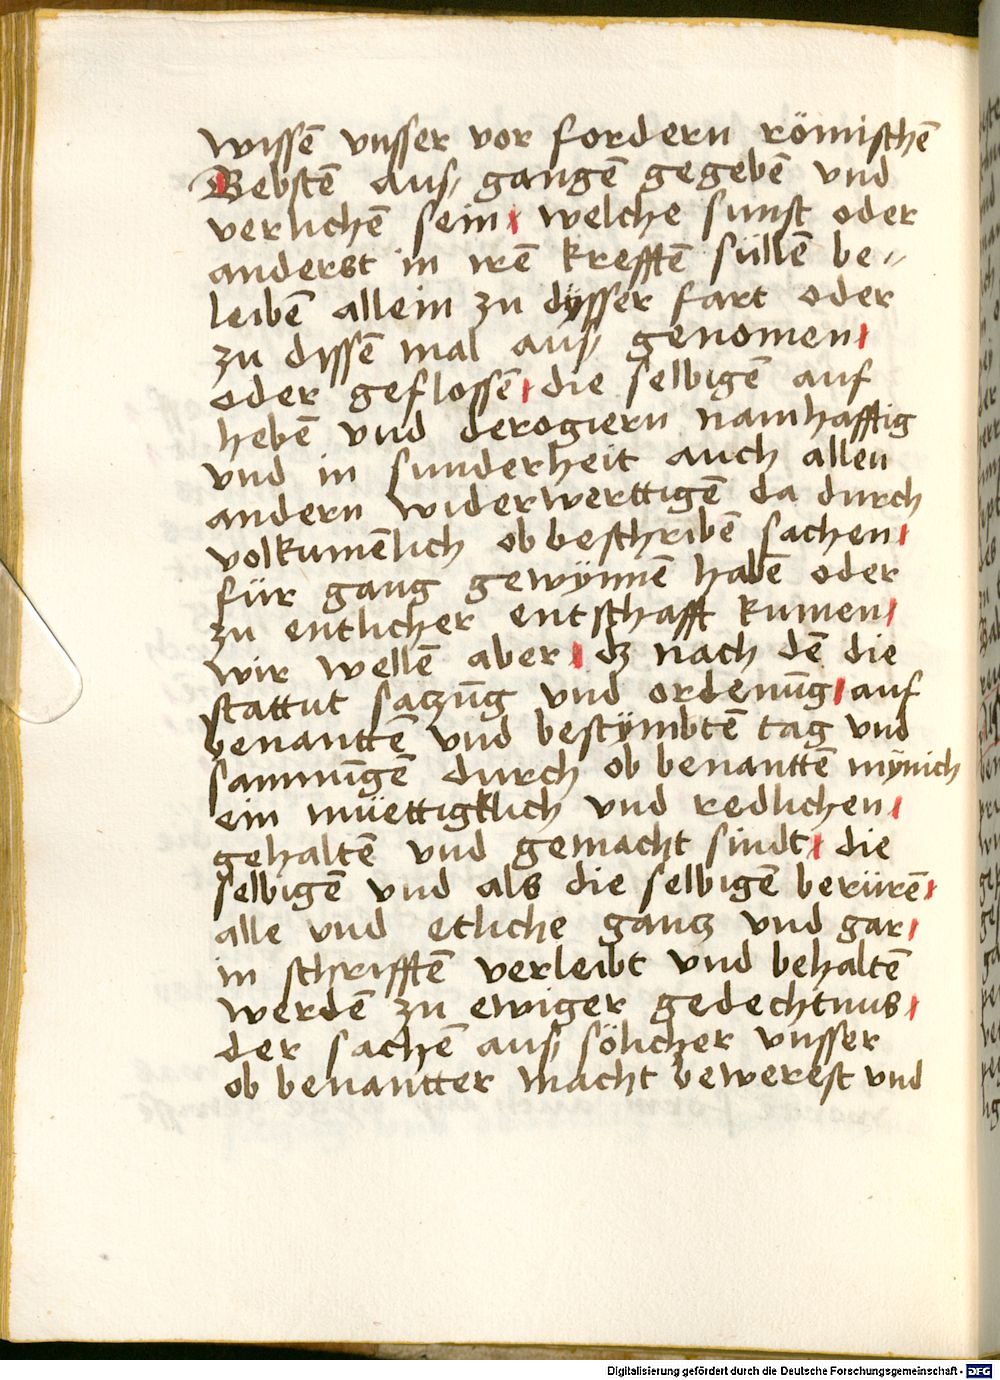 wissen̄ vnsser vor fordern römischen̄
Bebsten̄ aus, gangen̄ gegeben̄ vnd
verlichen̄ sein, welche sunst oder
anderst in iren̄ krefften̄ süllen̄ be-
leiben̄ allein zu dÿsser fart oder
zu dissen̄ mal aus, genomen,
oder geflossen̄, die selbigen̄ auf
heben̄ vnd derogiern namhafftig
vnd in sunderheit auch allen
andern widerwerttigen̄ da durch
volkumenlich ob beschriben̄ sachen,
für gang gewÿnnen̄ haben̄ oder
zu entlicher entschafft kumen,
wir wellen̄ aber, dz nach den̄ die
stattut satzūg vnd ordenūg, auf
benantten̄ vnd bestÿmbten̄ tag vnd
sammūgen̄ durch ob benantten̄ mÿnich
ein müettigklich vnd redlichen,
gehalten̄ vnd gemacht sindt, die
selbigen̄ vnd als die selbigen̄ berüren̄,
alle vnd etliche gantz vnd gar,
in schrifften̄ verleibt vnd behalten̄
werden̄ zu ewiger gedechtnus,
der sachen̄ aus, sölicher vnsser
ob benantter macht bewerest vnd
Digitalisierung gefördert durch die Deutsche Forschungsgemeinschaft - DFG